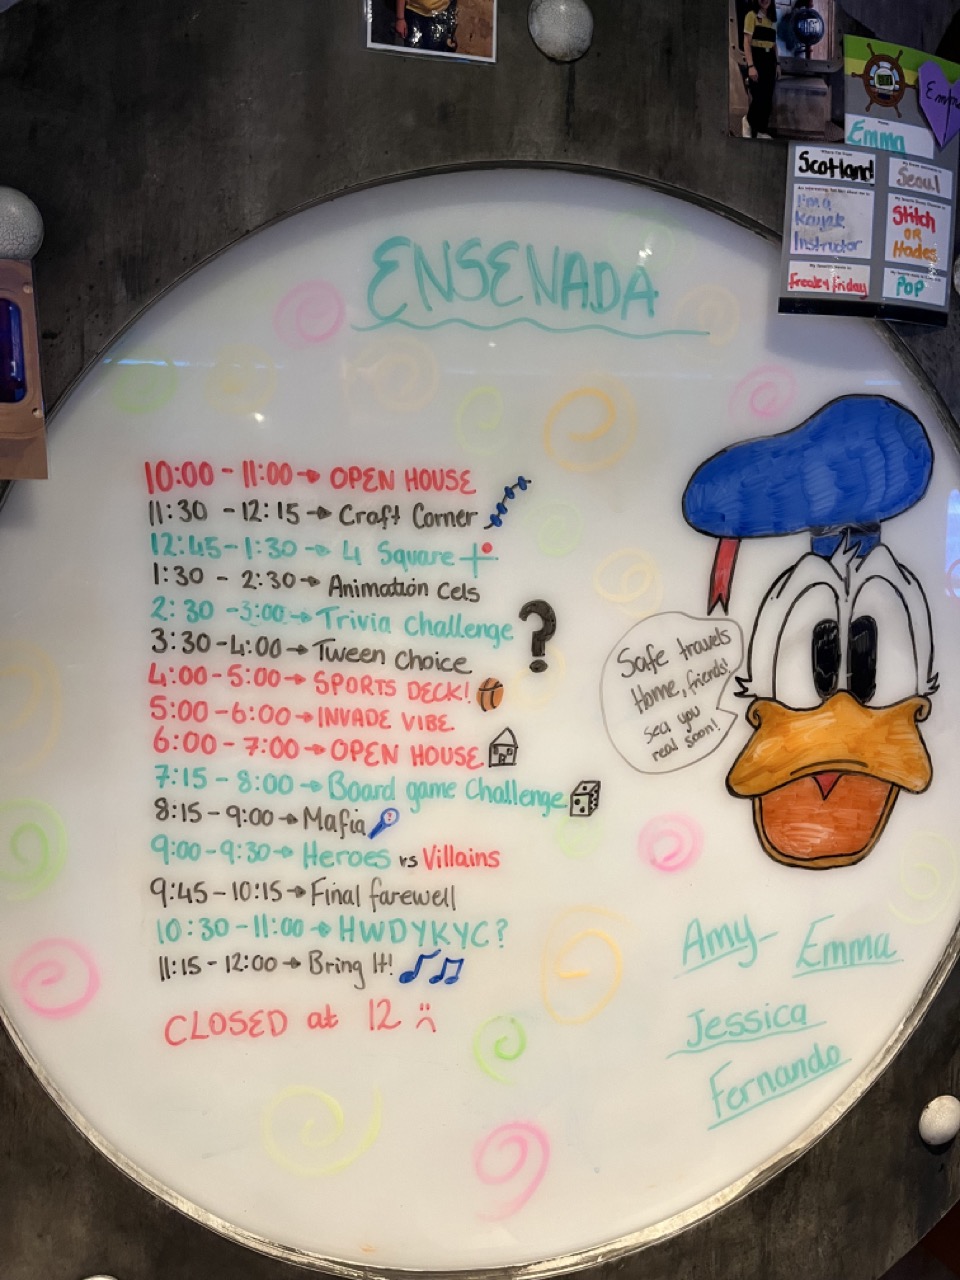 Emma
Scotland
Seoul
I'm a
Kayak
Instructor
Stitch
OR
Hades
Freaky Friday
POP
ENSENADA
10:00 - 11:00 → OPEN HOUSE
11:30 - 12:15 → Craft Corner
12:45 - 1:30 → 4 Square
1:30 - 2:30 → Animation Cels
2:30 - 3:00 → Trivia Challenge ?
3:30 - 4:00 → Tween Choice
4:00 - 5:00 → SPORTS DECK!
5:00 - 6:00 → INVADE VIBE
6:00 - 7:00 → OPEN HOUSE
7:15 - 8:00 → Board game Challenge
8:15 - 9:00 → Mafia
9:00 - 9:30 → Heroes vs Villains
9:45 - 10:15 → Final farewell
10:30 - 11:00 → HWDYKYC?
11:15 - 12:00 → Bring It!
CLOSED at 12 :(
Safe travels
Home, friends!
sea you
real soon!
Amy
Emma
Jessica
Fernando